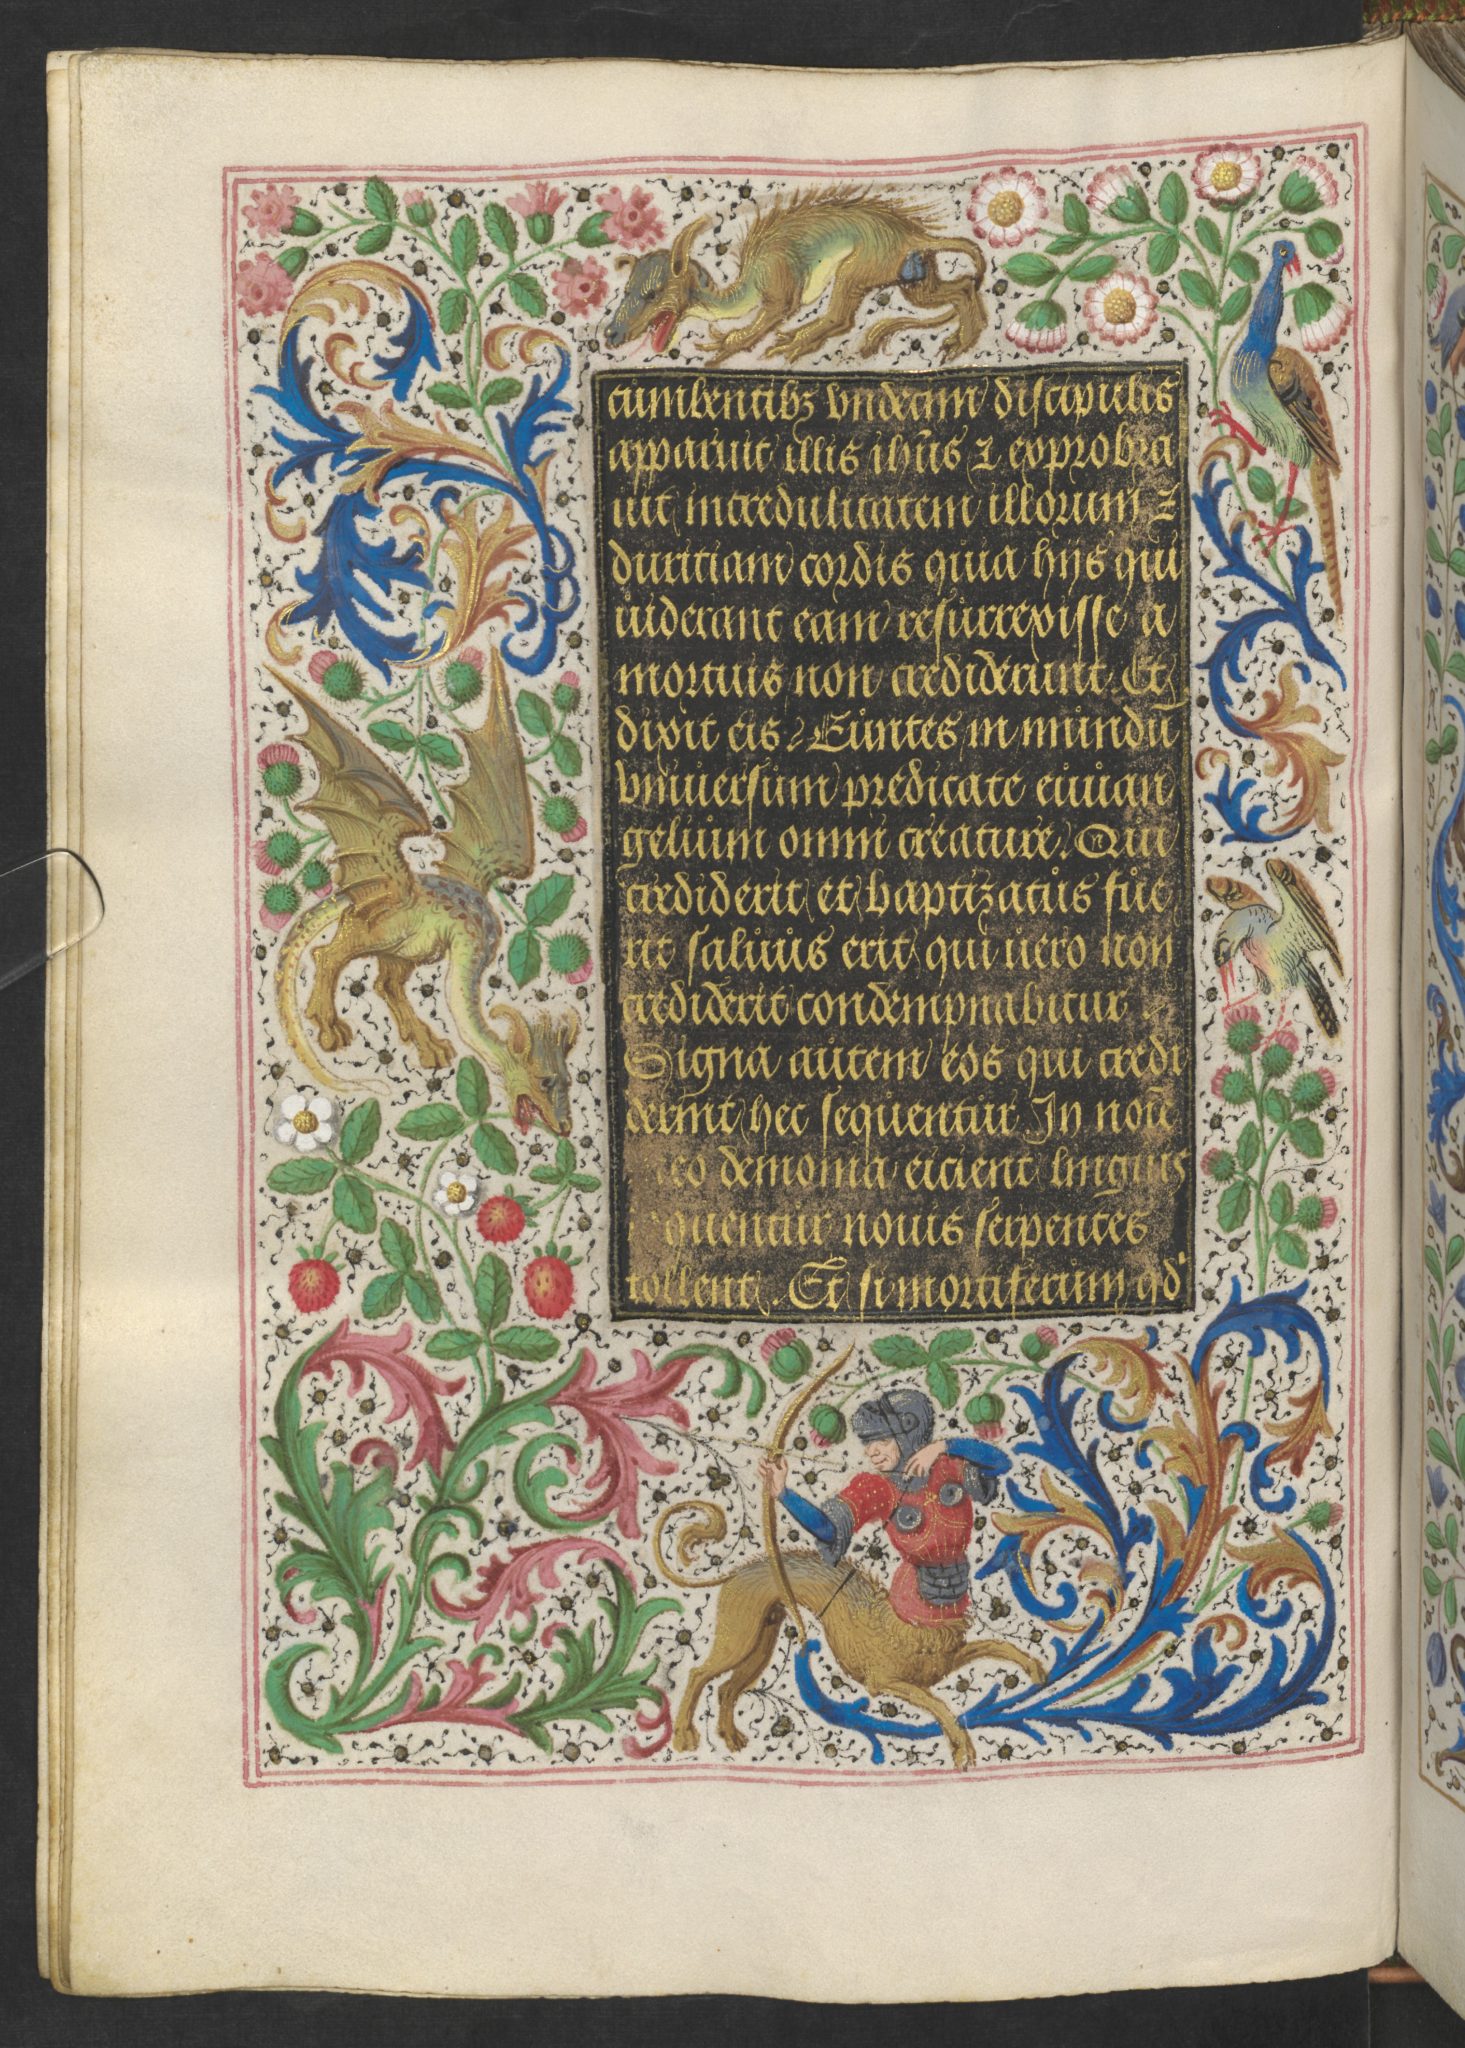 cumbentibꝫ vndecim discipulis
apparuit illis ihu̅s ⁊ exprobra
uit incredulitatem illorum ⁊
duritiam cordis quia hijs qui
uiderant eam resurrexisse a
mortuis non crediderunt Et
dixit eis Euntes in mundu̅
vniuersum predicate euuan
gelium omni creature. Qui
crediderit et baptizatus fue
rit saluus erit qui uero non
crediderit condempnabitur
Signa autem eos qui credi
derint hec sequentur In noi̅e
eo demonia eicient linguis
quentur nouis serpentes
tollent. Et si mortiferum qd